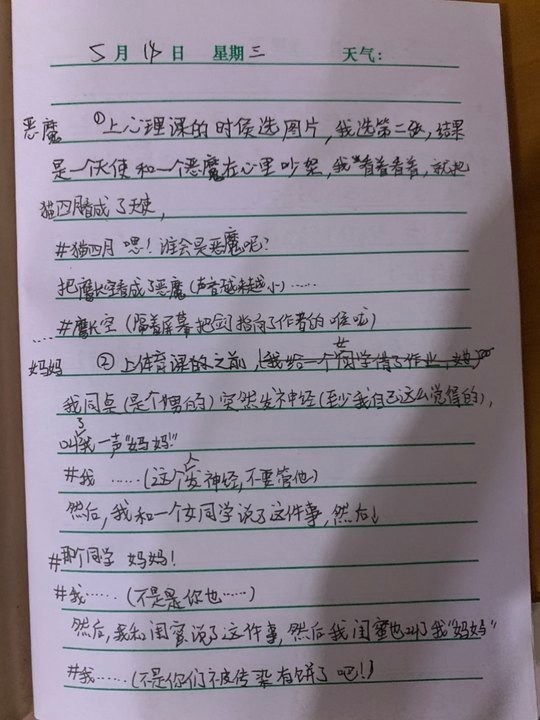 5月14日 星期三 天气:
恶魔 ①上心理课的时候选图片,我选第二张,结果
是一个天使和一个恶魔在心里吵架,我"看着看着,就把
猫四月看成了天使,
#猫四月 嘿!谁会是恶魔呢?
把鹰长空看成了恶魔(声音越来越小)……
……#鹰长空(隔着屏幕把剑指向了作者的喉咙)
妈妈 ②上体育课的之前,(我给一个女同学借了作业,
我同桌(是个男的)突然发神经(至少我自己这么觉得的),
叫了我一声"妈妈"
#我 ……(这个人发神经,不要管他)
然后,我和一个女同学说了这件事,然后↓
#那个同学 妈妈!
#我……(不是是你也……)
然后,我和闺蜜说了这件事,然后我闺蜜也叫了我"妈妈"
#我……(不是你们不皮传染有饼了吧!)